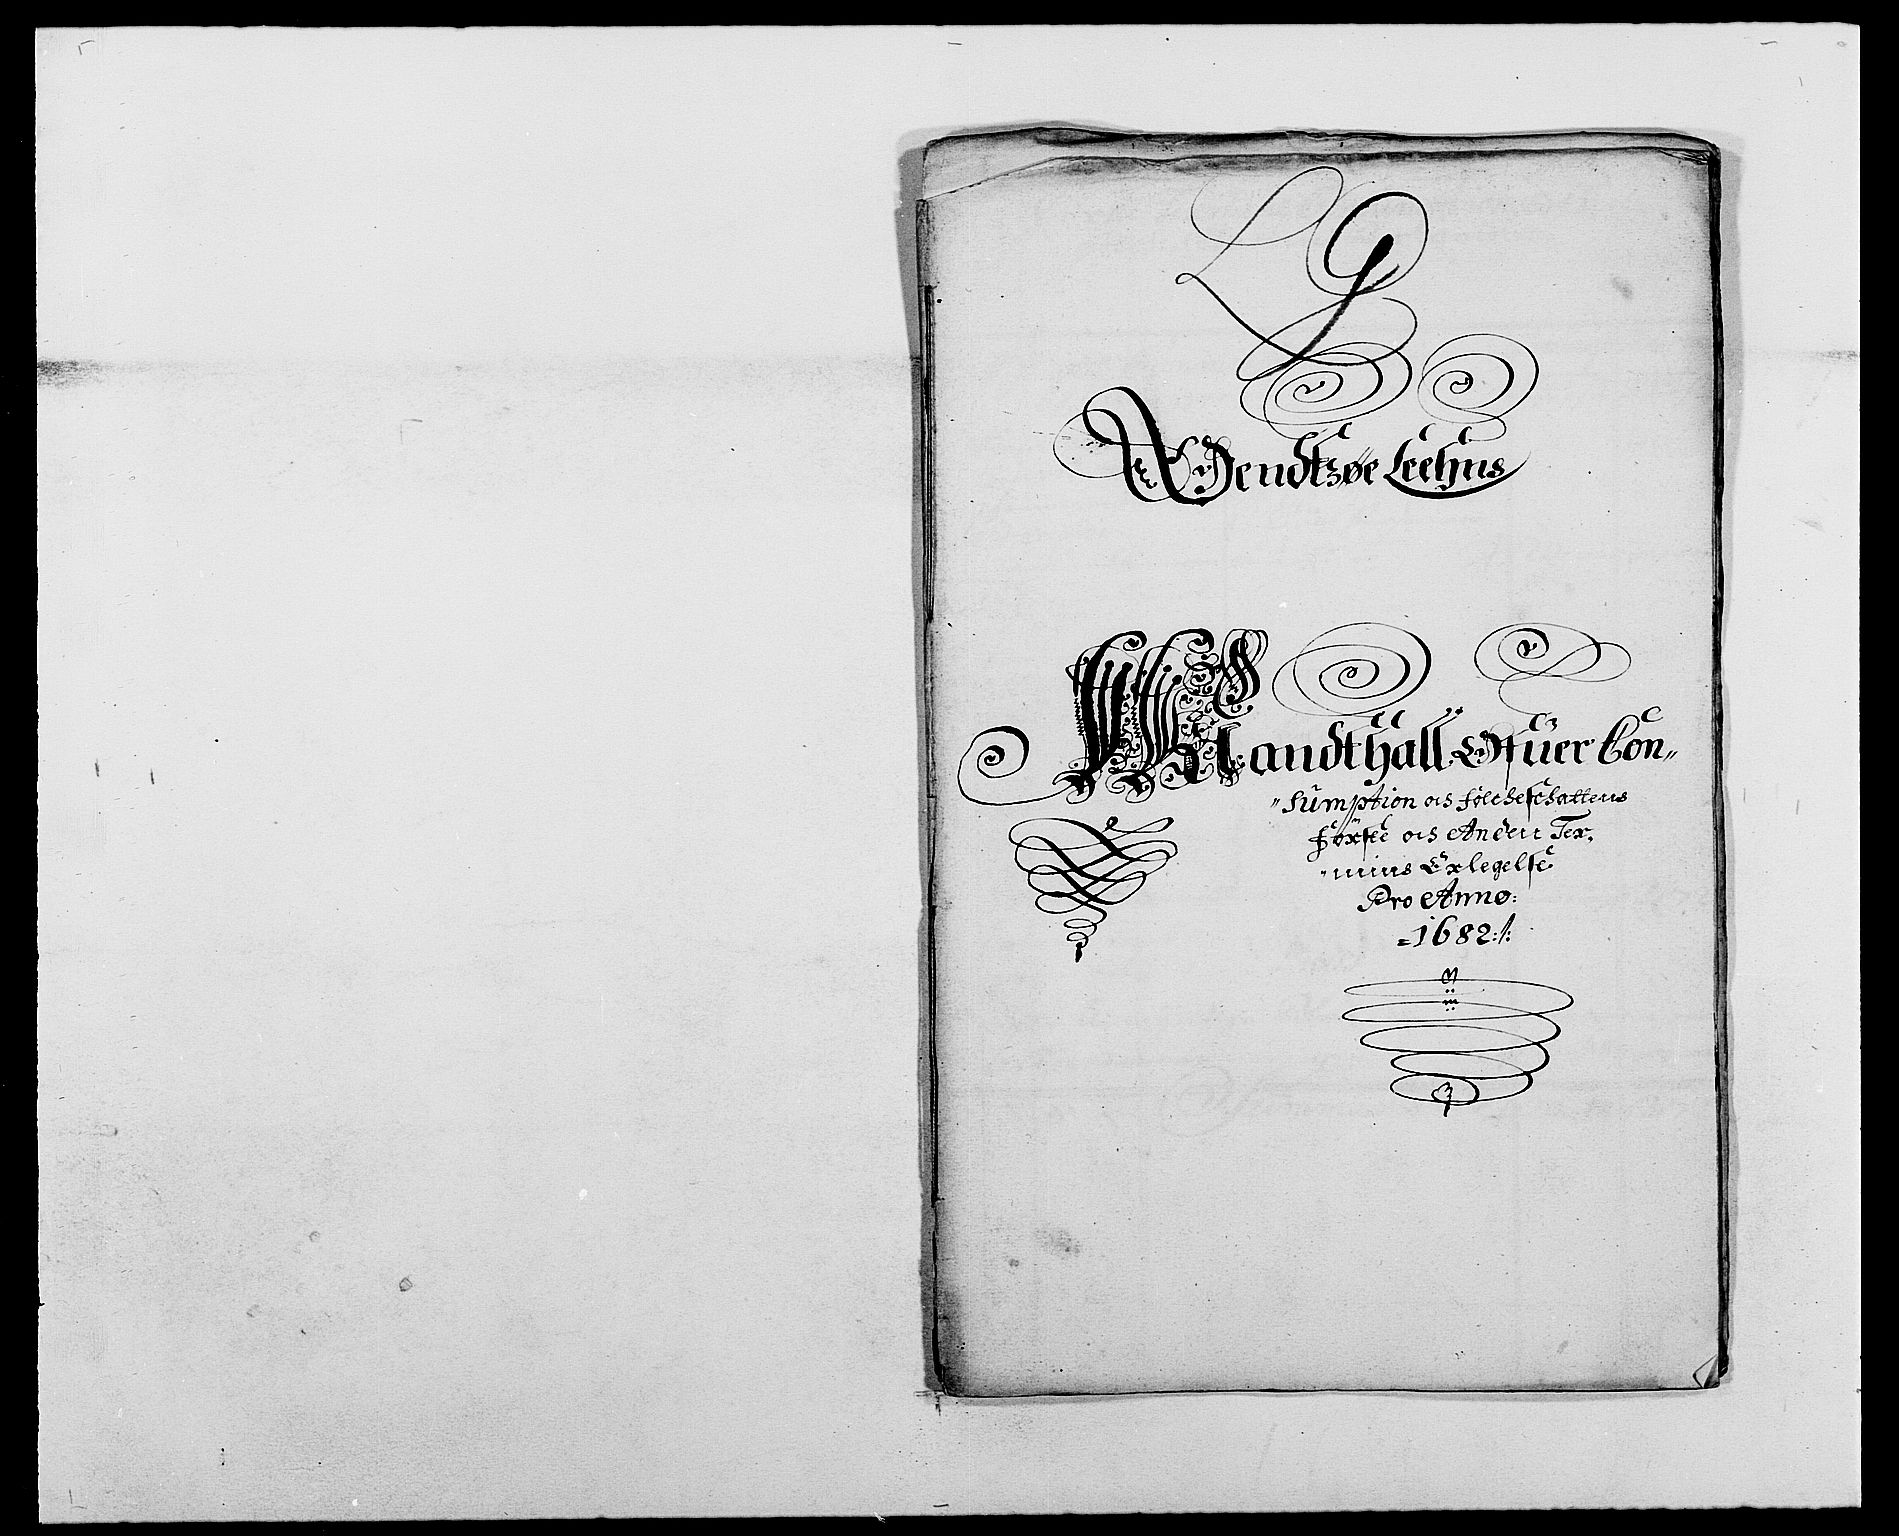 L G
Wendtzøe Leehns
Mandthall Ofuer Con-
sumption och folcheschattens
förste och Anden Ter,
mins Erlegelse
Pro Anno:
1682:/: